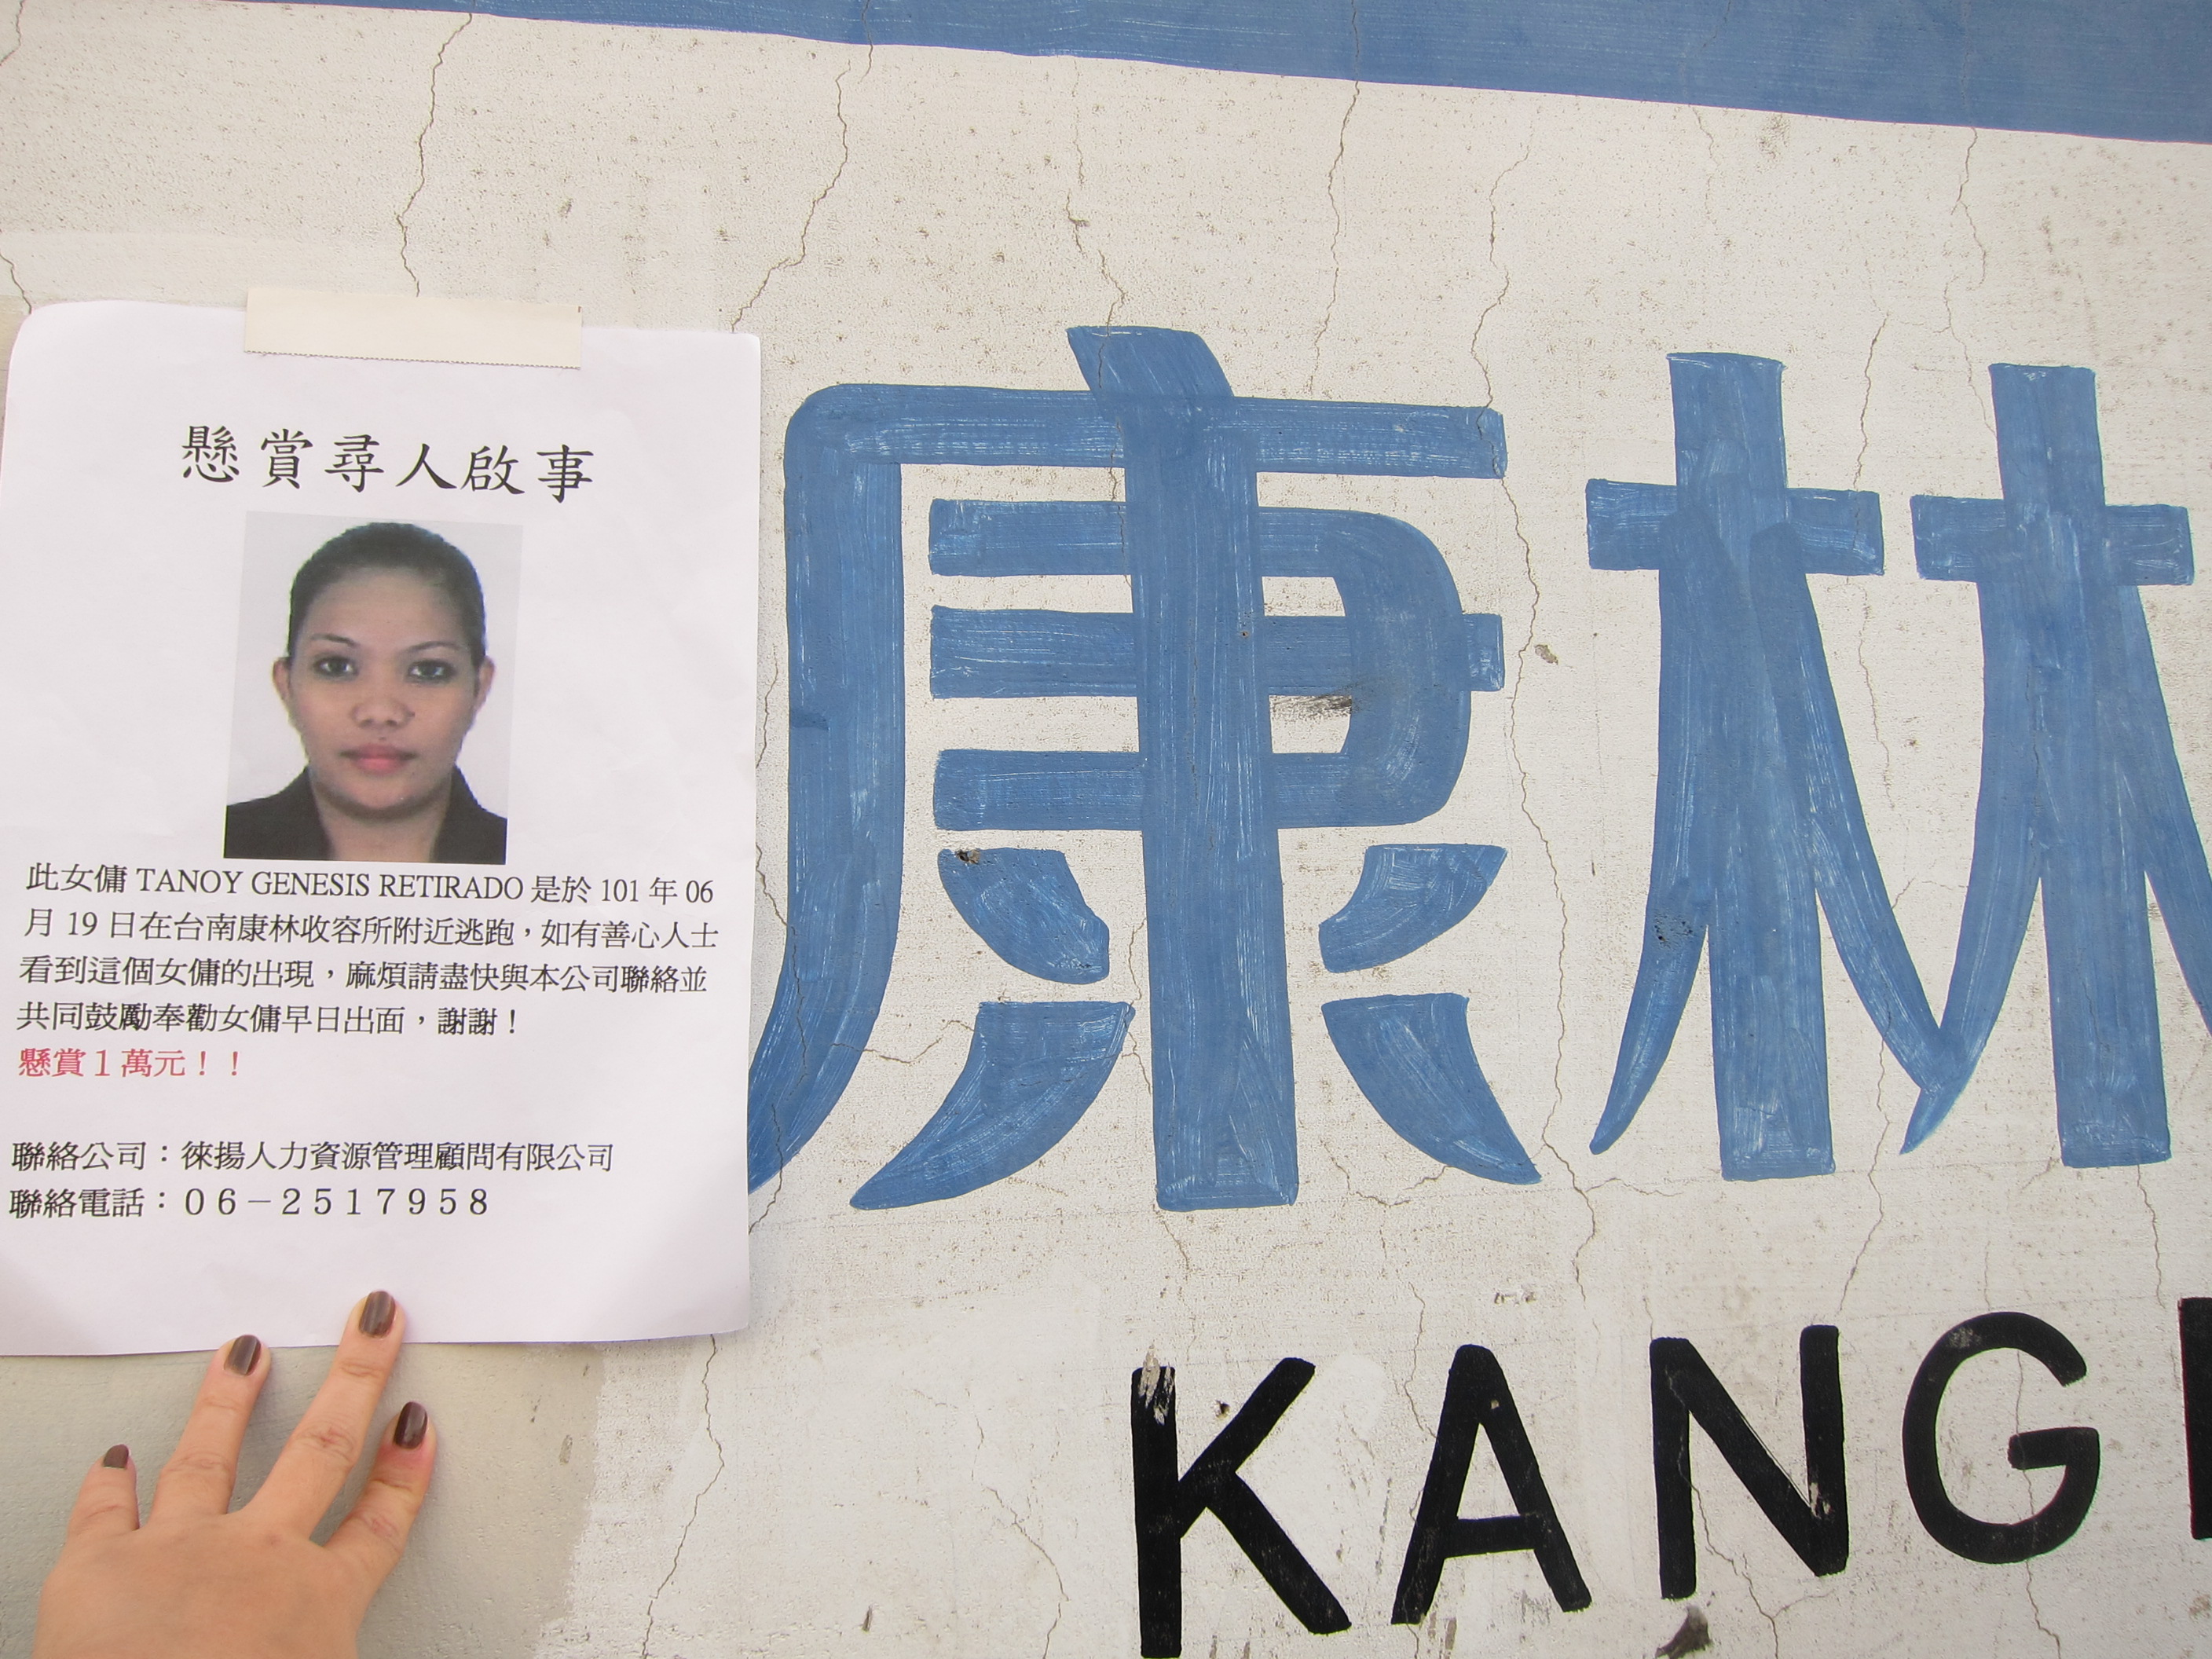 懸賞尋人啟事
此女傭 TANOY GENESIS RETIRADO 是於 101 年 06
月 19 日在台南康林收容所附近逃跑，如有善心人士
看到這個女傭的出現，麻煩請盡快與本公司聯絡並
共同鼓勵奉勸女傭早日出面，謝謝！
懸賞１萬元！！
聯絡公司：徠揚人力資源管理顧問有限公司
聯絡電話：０６－２５１７９５８
康林
KANG